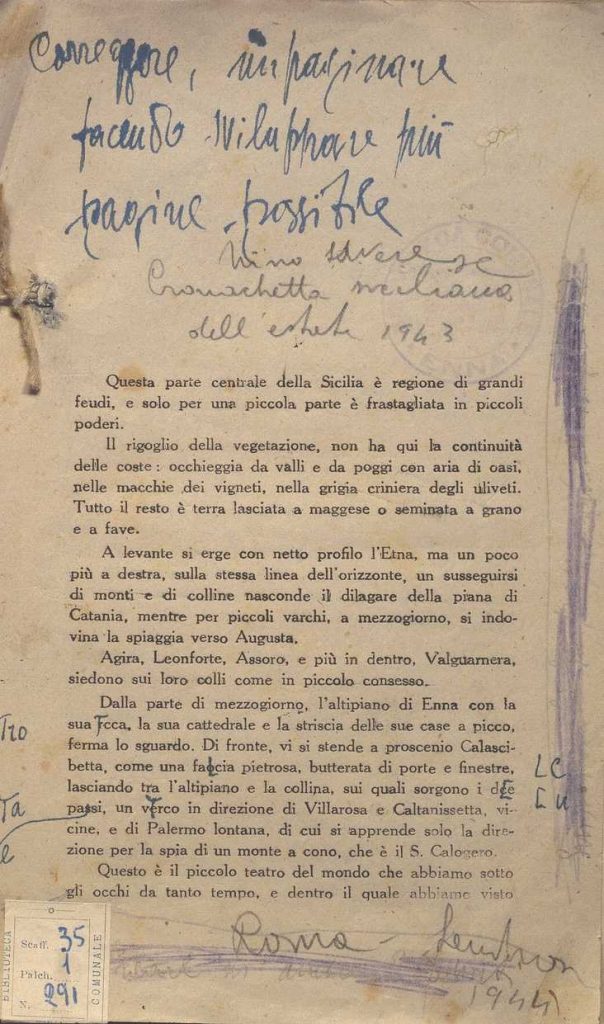 Correggere, impaginare
facendo sviluppare più
pagine possibile
Nino Savarese
Cronachetta siciliana
dell'estate 1943
Questa parte centrale della Sicilia è regione di grandi
feudi, e solo per una piccola parte è frastagliata in piccoli
poderi.
Il rigoglio della vegetazione, non ha qui la continuità
delle coste : occhieggia da valli e da poggi con aria di oasi,
nelle macchie dei vigneti, nella grigia criniera degli uliveti.
Tutto il resto è terra lasciata a maggese o seminata a grano
e a fave.
A levante si erge con netto profilo l'Etna, ma un poco
più a destra, sulla stessa linea dell'orizzonte, un susseguirsi
di monti e di colline nasconde il dilagare della piana di
Catania, mentre per piccoli varchi, a mezzogiorno, si indo-
vina la spiaggia verso Augusta.
Agira, Leonforte, Assoro, e più in dentro, Valguarnera,
siedono sui loro colli come in piccolo consesso.
Dalla parte di mezzogiorno, l'altipiano di Enna con la
sua cca, la sua cattedrale e la striscia delle sue case a picco,
ferma lo sguardo. Di fronte, vi si stende a proscenio Calasci-
betta, come una faccia pietrosa, butterata di porte e finestre,
lasciando tra l'altipiano e la collina, sui quali sorgono i due
passi, un verco in direzione di Villarosa e Caltanissetta, vi-
cine, e di Palermo lontana, di cui si apprende solo la dire-
zione per la spia di un monte a cono, che è il S. Calogero.
Questo è il piccolo teatro del mondo che abbiamo sotto
gli occhi da tanto tempo, e dentro il quale abbiamo visto
Roma - Sandron
1944
BIBLIOTECA
COMUNALE
Scaff. 35
Palch. 1
N. 291